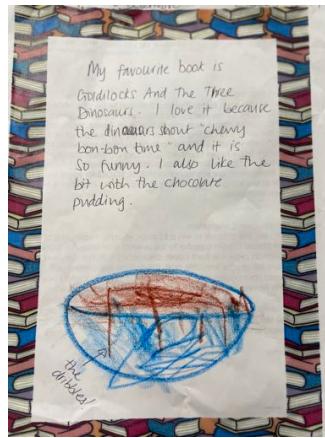 My favourite book is
Goldilocks And The Three
Dinosaurs. I love it because
the dinosaurs shout "chewy
bon-bon time" and it is
so funny. I also like the
bit with the chocolate
pudding.
the
dribbles!